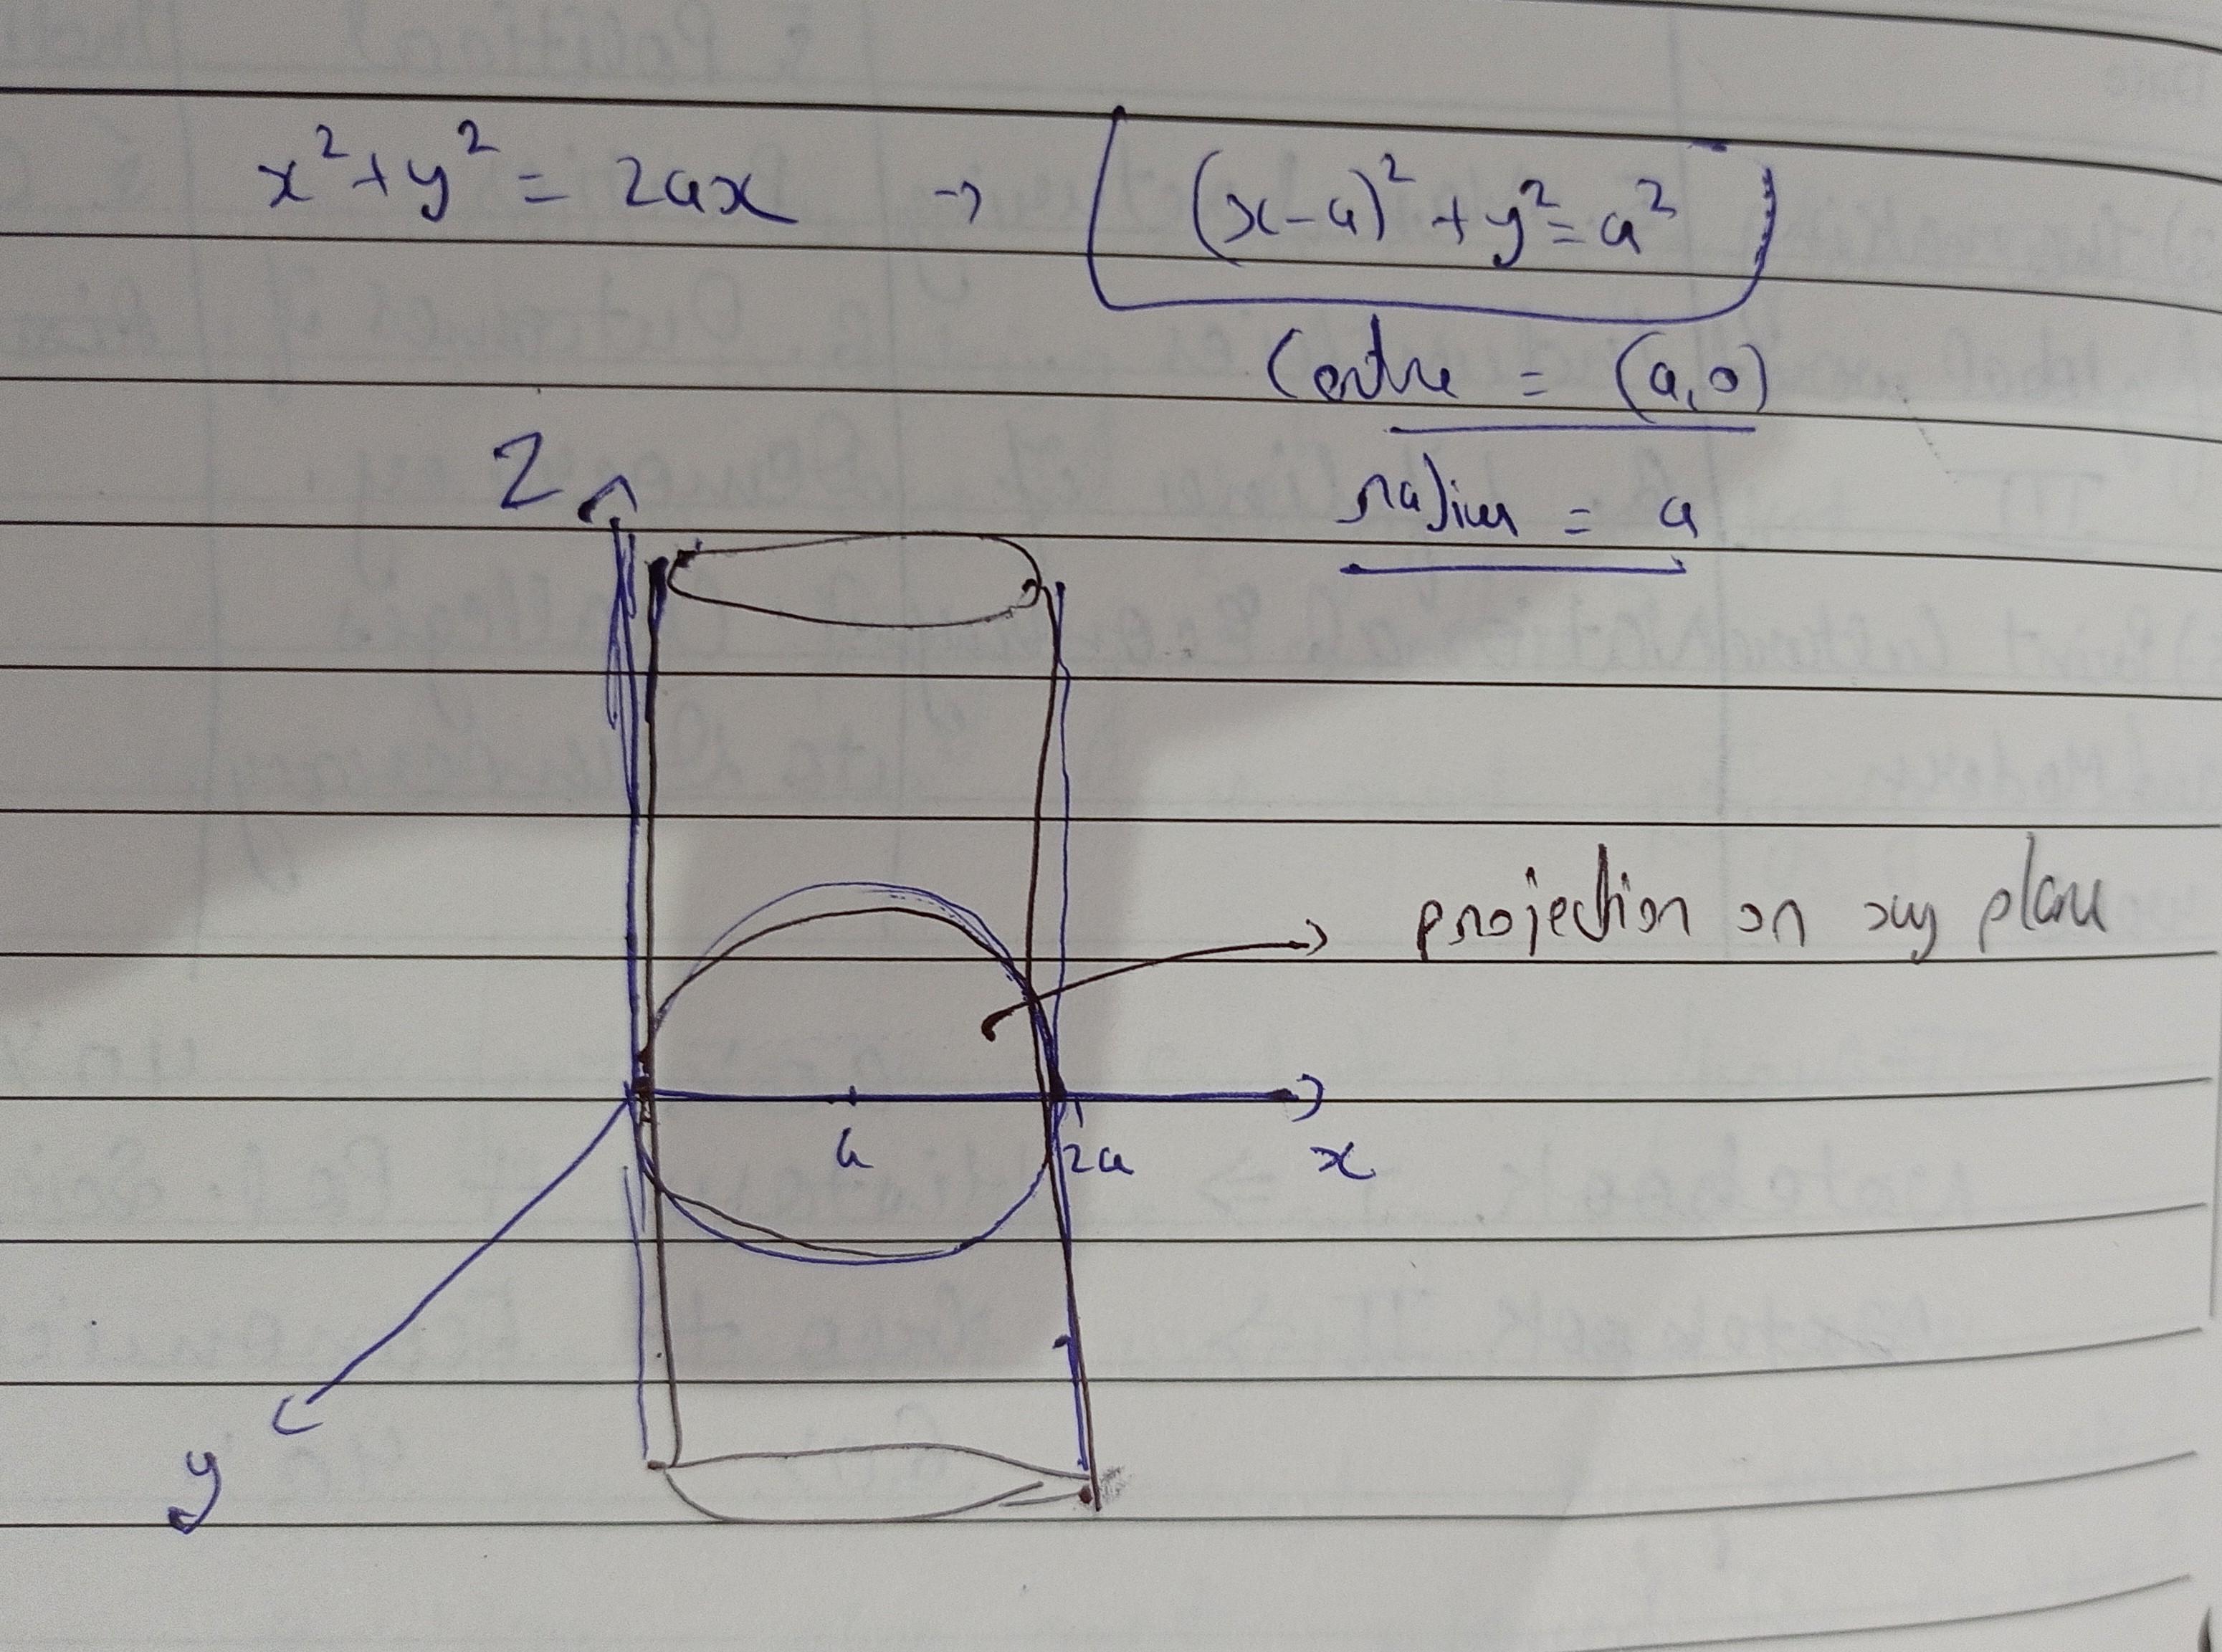 x²+y² = 2ax → (x-a)²+y²=a²
Centre = (a,0)
Z
radius = a
projection on xy plane
a
2a
x
y